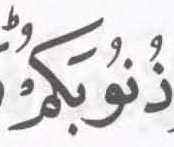 ذُنُوبَكُمْ ؕ